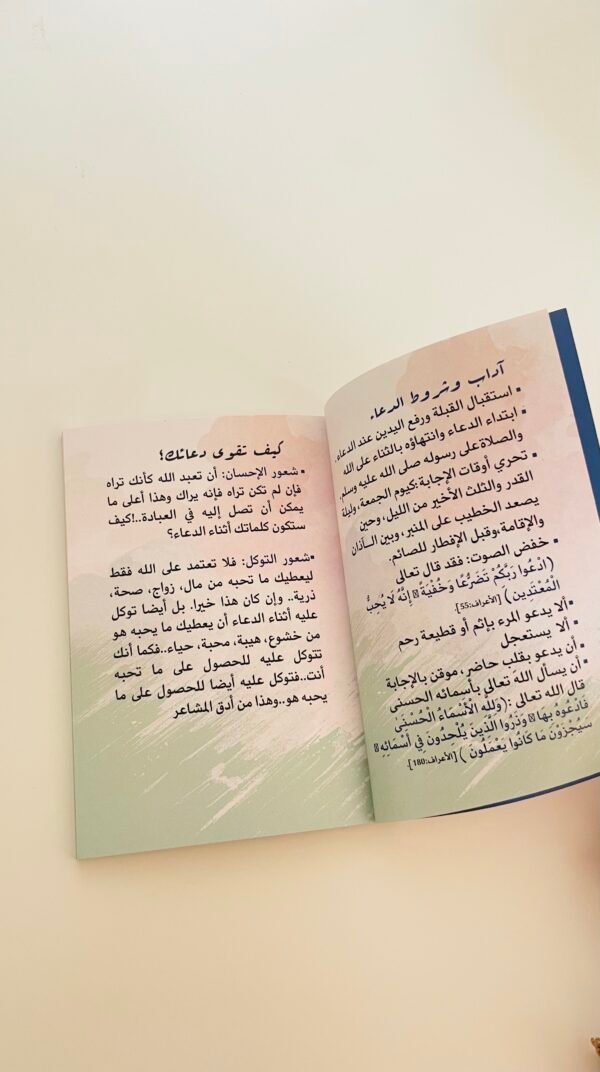 آداب وشروط الدعاء
▪ استقبال القبلة ورفع اليدين عند الدعاء.
▪ ابتداء الدعاء وانتهاؤه بالثناء على الله
والصلاة على رسوله صلى الله عليه وسلم.
▪ تحري أوقات الإجابة:كيوم الجمعة،وليلة
القدر والثلث الأخير من الليل، وحين
يصعد الخطيب على المنبر، وبين الـأذان
والإقامة،وقبل الإفطار للصائم.
▪ خفض الصوت: فقد قال تعالى
(ادْعُوا رَبَّكُمْ تَضَرُّعًا وَخُفْيَةً ۚ إِنَّهُ لَا يُحِبُّ
الْمُعْتَدِين) [الأعراف:55].
▪ألا يدعو المرء بإثم أو قطيعة رحم
▪ ألا يستعجل
▪ أن يدعو بقلب حاضر، موقن بالإجابة
▪ أن يسأل الله تعالى بأسمائه الحسنى
قال الله تعالى :(وَلِلَّهِ الْأَسْمَاءُ الْحُسْنَىٰ
فَادْعُوهُ بِهَا ۖ وَذَرُوا الَّذِينَ يُلْحِدُونَ فِي أَسْمَائِهِ ۚ
سَيُجْزَوْنَ مَا كَانُوا يَعْمَلُونَ ) [الأعراف:180].
كيف تقوى دعائك؟
▪ شعور الإحسان: أن تعبد الله كأنك تراه
فإن لم تكن تراه فإنه يراك وهذا أعلى ما
يمكن أن تصل إليه في العبادة..!كيف
ستكون كلماتك أثناء الدعاء؟
▪شعور التوكل: فلا تعتمد على الله فقط
ليعطيك ما تحبه من مال، زواج، صحة،
ذرية.. وإن كان هذا خيرا. بل أيضا توكل
عليه أثناء الدعاء أن يعطيك ما يحبه هو
من خشوع، هيبة، محبة، حياء..فكما أنك
تتوكل عليه للحصول على ما تحبه
أنت..فتوكل عليه أيضا للحصول على ما
يحبه هو..وهذا من أدق المشاعر